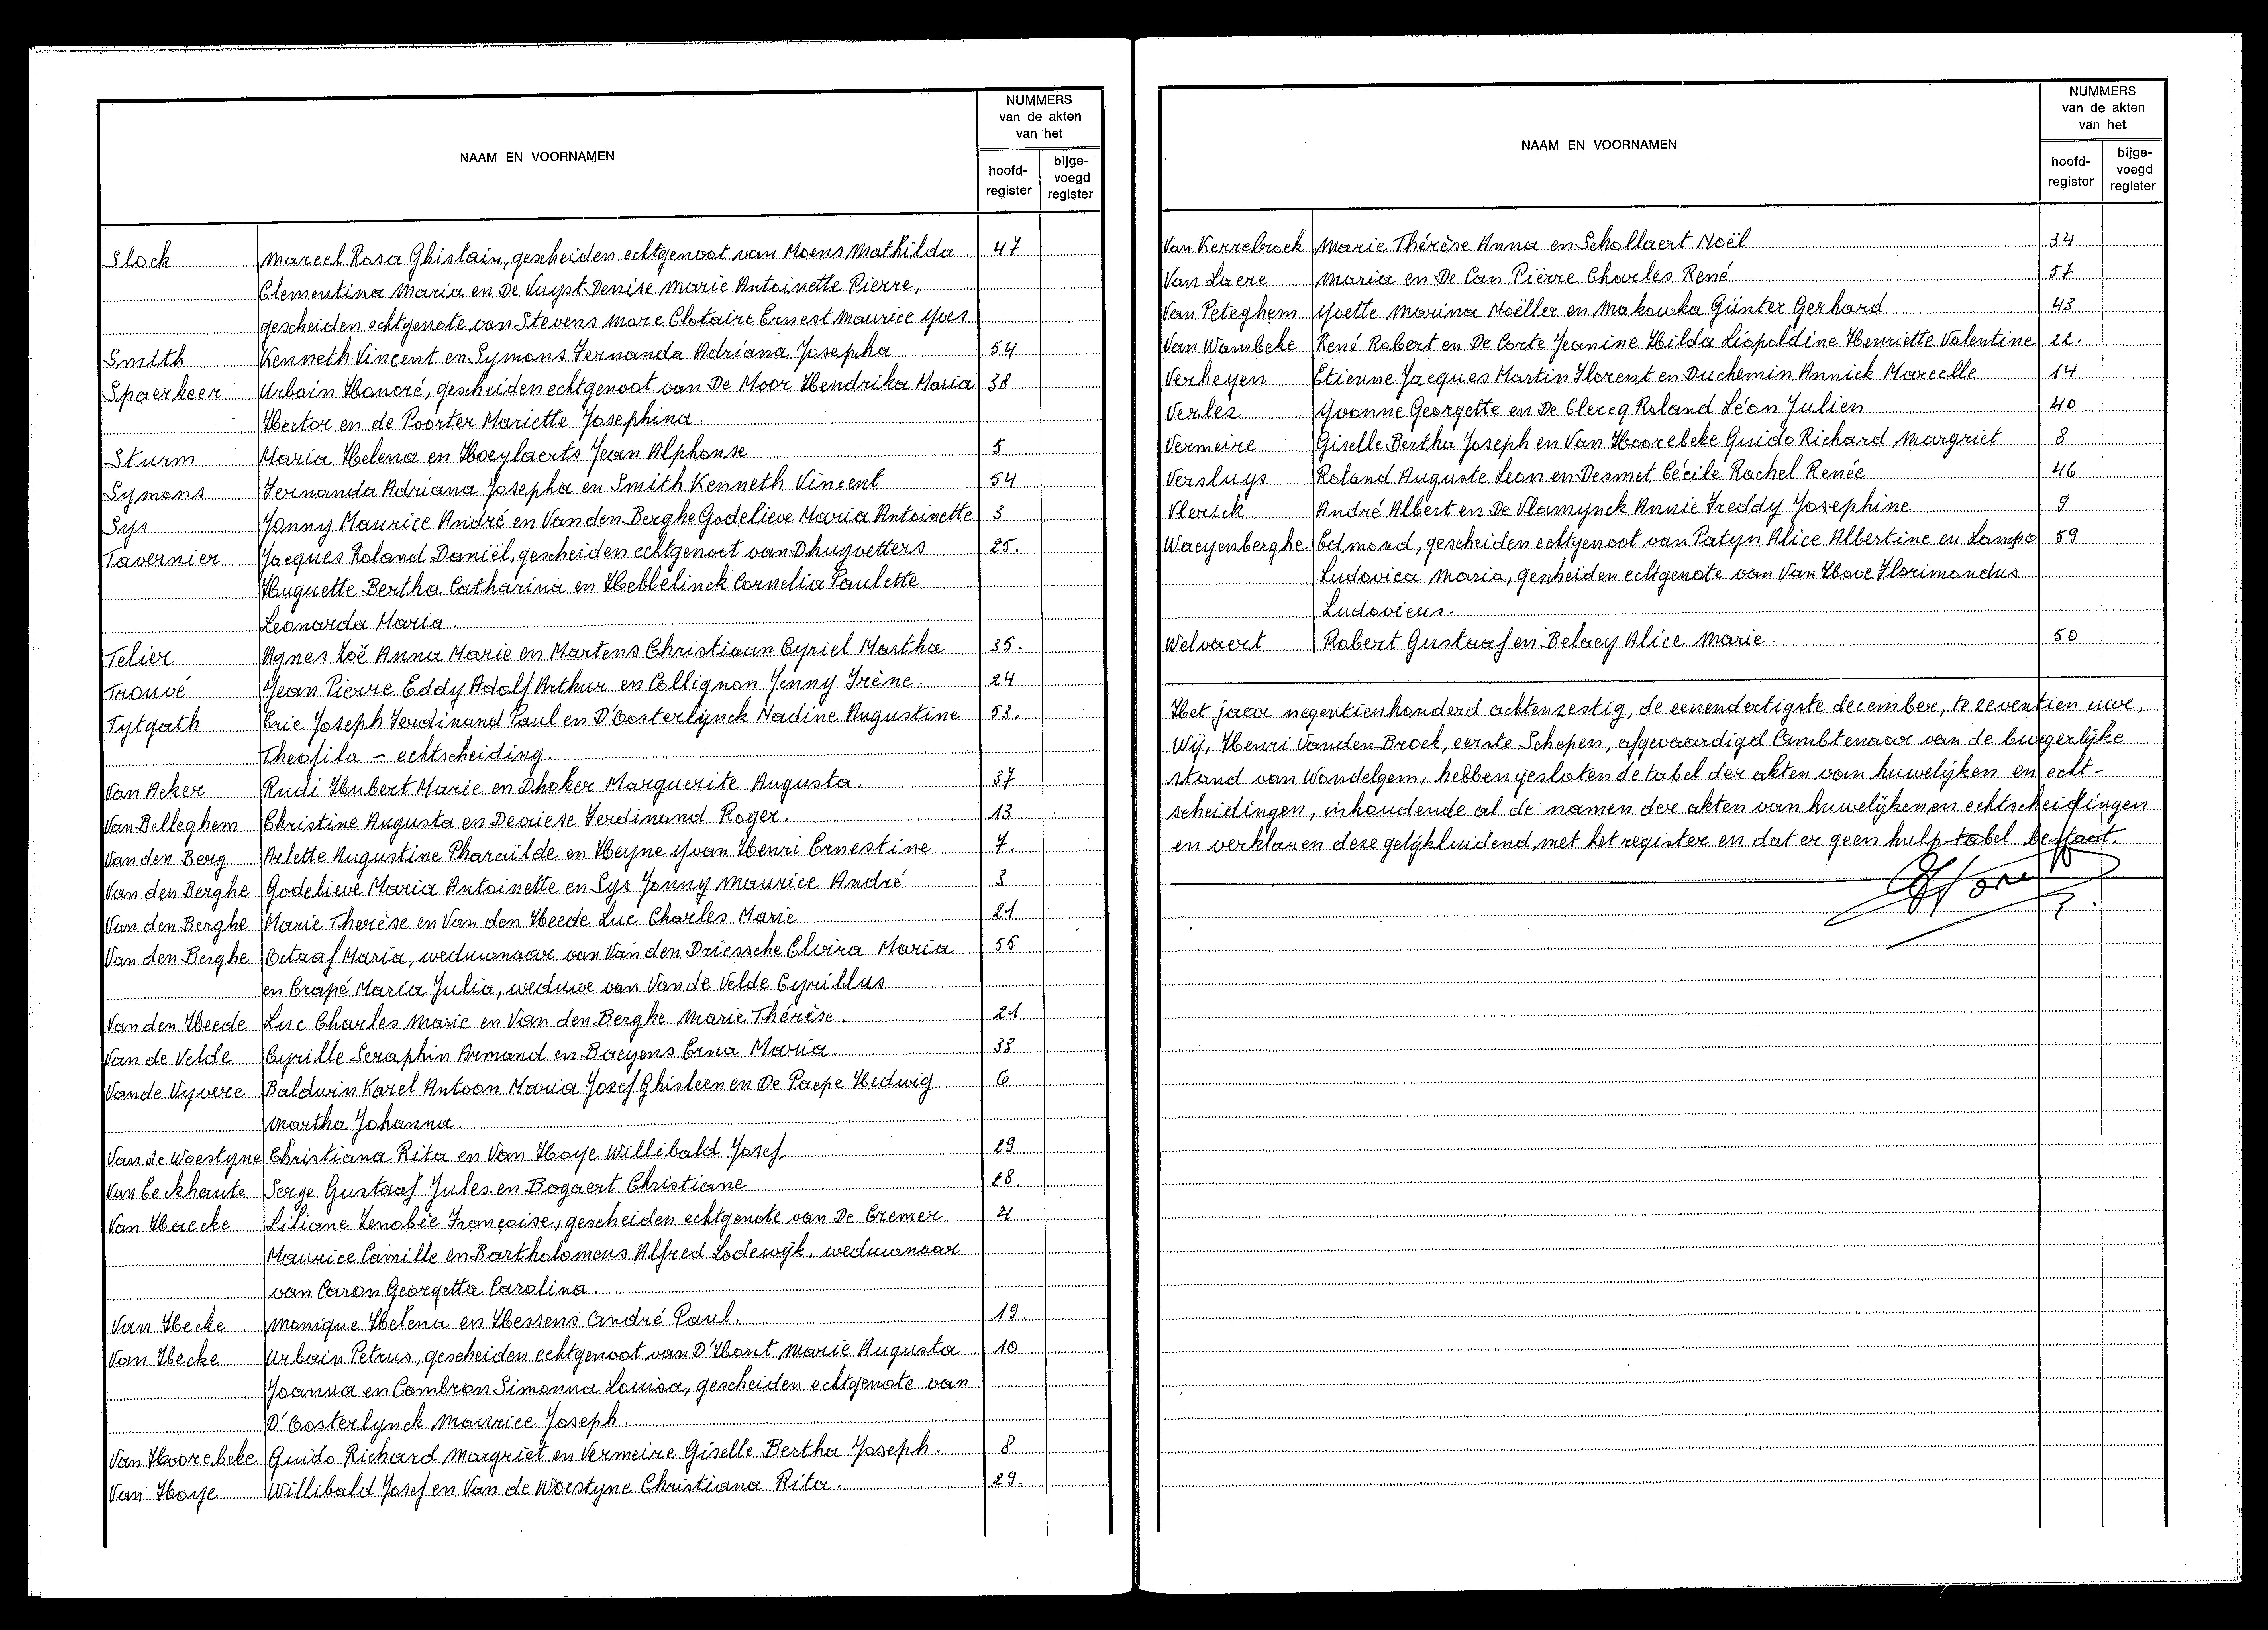 NAAM EN VOORNAMEN
NUMMERS
van de akten
van het
hoofd-
register
bijge-
voegd
register
Slock Marcel Rosa Ghislain, gescheiden echtgenoot van Moens Mathilda 47
Clementina Maria en De Vuyst Denise Marie Antoinette Pierre,
gescheiden echtgenote van Stevens Marc Clotaire Ernest Maurice Yves
Smith Kenneth Vincent en Symons Fernanda Adriana Josepha 54
Spaerkeer Urbain Honoré, gescheiden echtgenoot van De Moor Hendrika Maria 38
Hector en de Poorter Mariette Josephina.
Sturm Maria Helena en Hoeylaerts Jean Alphonse 5
Symons Fernanda Adriana Josepha en Smith Kenneth Vincent 54
Sys Jonny Maurice André en Van den Berghe Godelieve Maria Antoinette 3
Tavernier Jacques Roland Daniël, gescheiden echtgenoot van Dhuyvetters 25.
Huguette Bertha Catharina en Hebbelinck Cornelia Paulette
Leonarda Maria.
Telier Agnes Zoë Anna Marie en Martens Christiaan Cyriel Martha 35.
Trouvé Jean Pierre Eddy Adolf Arthur en Collignon Jenny Irène 24
Tytgath Eric Joseph Ferdinand Paul en D'Oosterlynck Nadine Augustine 53.
Theofila - echtscheiding.
Van Acker Rudi Hubert Marie en Dhoker Marguerite Augusta. 37
Van Belleghem Christine Augusta en Devriese Ferdinand Roger. 13
Van den Berg Arlette Augustine Pharaïlde en Heyne Yvan Henri Ernestine 7.
Van den Berghe Godelieve Maria Antoinette en Sys Jonny Maurice André 3
Van den Berghe Marie Therèse en Van den Heede Luc Charles Marie 21
Van den Berghe Octaaf Maria, weduwnaar van Van den Driessche Elvira Maria 55
en Crapé Maria Julia, weduwe van Van de Velde Cyrillus
Van den Heede Luc Charles Marie en Van den Berghe Marie Thérèse. 21
Van de Velde Cyrille Seraphin Armand en Baeyens Erna Maria. 33
Van de Vyvere Baldwin Karel Antoon Maria Jozef Ghisleen en De Paepe Hedwig 6
Martha Johanna
Van de Woestyne Christiana Rita en Van Hoye Willibald Josef 29
Van Eeckhaute Serge Gustaaf Jules en Bogaert Christiane 28.
Van Haecke Liliane Zenobie Françoise, gescheiden echtgenote van De Cremer 4
Maurice Camille en Bartholomeus Alfred Lodewijk, weduwnaar
van Caron Georgetta Carolina.
Van Hecke Monique Helena en Hessens André Paul. 19.
Van Hecke Urbain Petrus, gescheiden echtgenoot van D'Hont Marie Augusta 10
Joanna en Cambron Simonna Louisa, gescheiden echtgenote van
D'Oosterlynck Maurice Joseph.
Van Hoorebeke Guido Richard Margriet en Vermeire Giselle Bertha Joseph. 8
Van Hoye Willibald Josef en Van de Woestyne Christiana Rita. 29.
NAAM EN VOORNAMEN
NUMMERS
van de akten
van het
hoofd-
register
bijge-
voegd
register
Van Kerrebroeck Marie Thérèse Anna en Schollaert Noël 34
Van Laere Maria en De Can Pierre Charles René 57
Van Peteghem Yvette Marina Noëller en Makowka Günter Gerhard 43
Van Wambeke René Robert en De Corte Jeanine Hilda Léopoldine Henriette Valentine 22.
Verheyen Etienne Jacques Martin Florent en Duchemin Annick Marcelle 14
Verlez Yvonne Georgette en De Clercq Roland Léon Julien 40
Vermeire Giselle Bertha Joseph en Van Hoorebeke Guido Richard Margriet 8
Versluys Roland Auguste Leon en Desmet Cécile Rachel Renée 46
Vlerick André Albert en De Vlamynck Annie Freddy Josephine 9
Waeyenberghe Edmond, gescheiden echtgenoot van Patyn Alice Albertine en Lampo 59
Ludovica Maria, gescheiden echtgenote van Van Hove Florimondus
Ludovicus.
Welvaert Robert Gustaaf en Belaey Alice Marie. 50
Het jaar negentienhonderd achtenzestig, de eenendertigste december, te zeventien uur,
Wij, Henri Vanden Broek, eerste Schepen, afgevaardigd Ambtenaar van de burgerlijke
stand van Wondelgem, hebben gesloten de tabel der akten van huwelijken en echt-
scheidingen, inhoudende al de namen der akten van huwelijken en echtscheidingen
en verklaren deze gelijkluidend met het register en dat er geen hulp tabel bestaat.